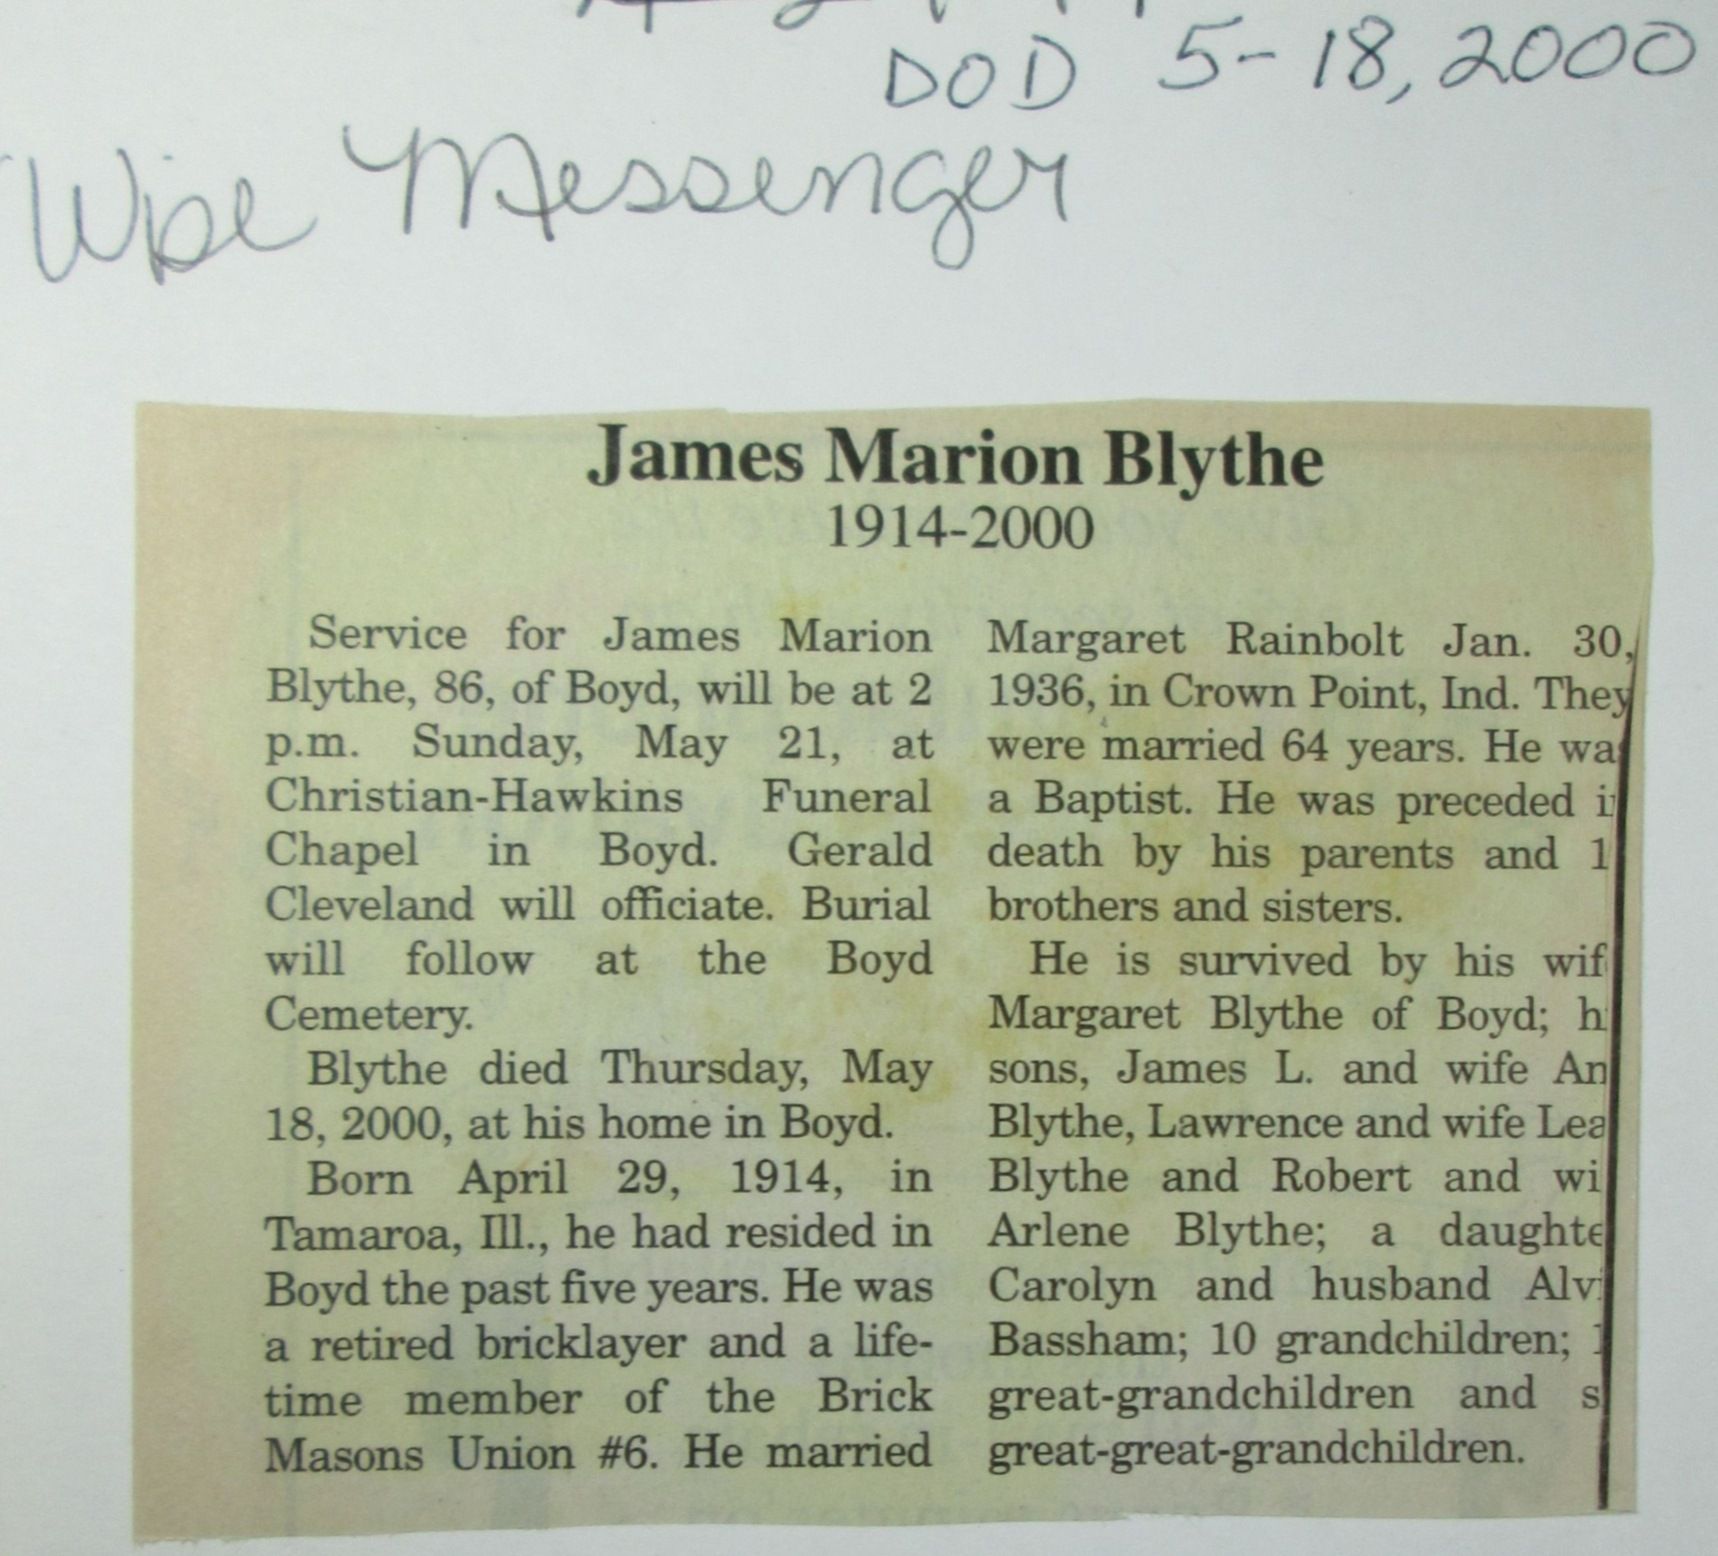 DOD 5-18, 2000
Wise Messenger
James Marion Blythe
1914-2000
Service for James Marion
Blythe, 86, of Boyd, will be at 2
p.m. Sunday, May 21, at
Christian-Hawkins Funeral
Chapel in Boyd. Gerald
Cleveland will officiate. Burial
will follow at the Boyd
Cemetery.
Blythe died Thursday, May
18, 2000, at his home in Boyd.
Born April 29, 1914, in
Tamaroa, Ill., he had resided in
Boyd the past five years. He was
a retired bricklayer and a life-
time member of the Brick
Masons Union #6. He married
Margaret Rainbolt Jan. 30,
1936, in Crown Point, Ind. They
were married 64 years. He
a Baptist. He was preceded
death by his parents and
brothers and sisters.
He is survived by his
Margaret Blythe of Boyd;
sons, James L. and wife
Blythe, Lawrence and wife
Blythe and Robert and
Arlene Blythe; a
Carolyn and husband
Bassham; 10 grandchildren;
great-grandchildren and
great-great-grandchildren.